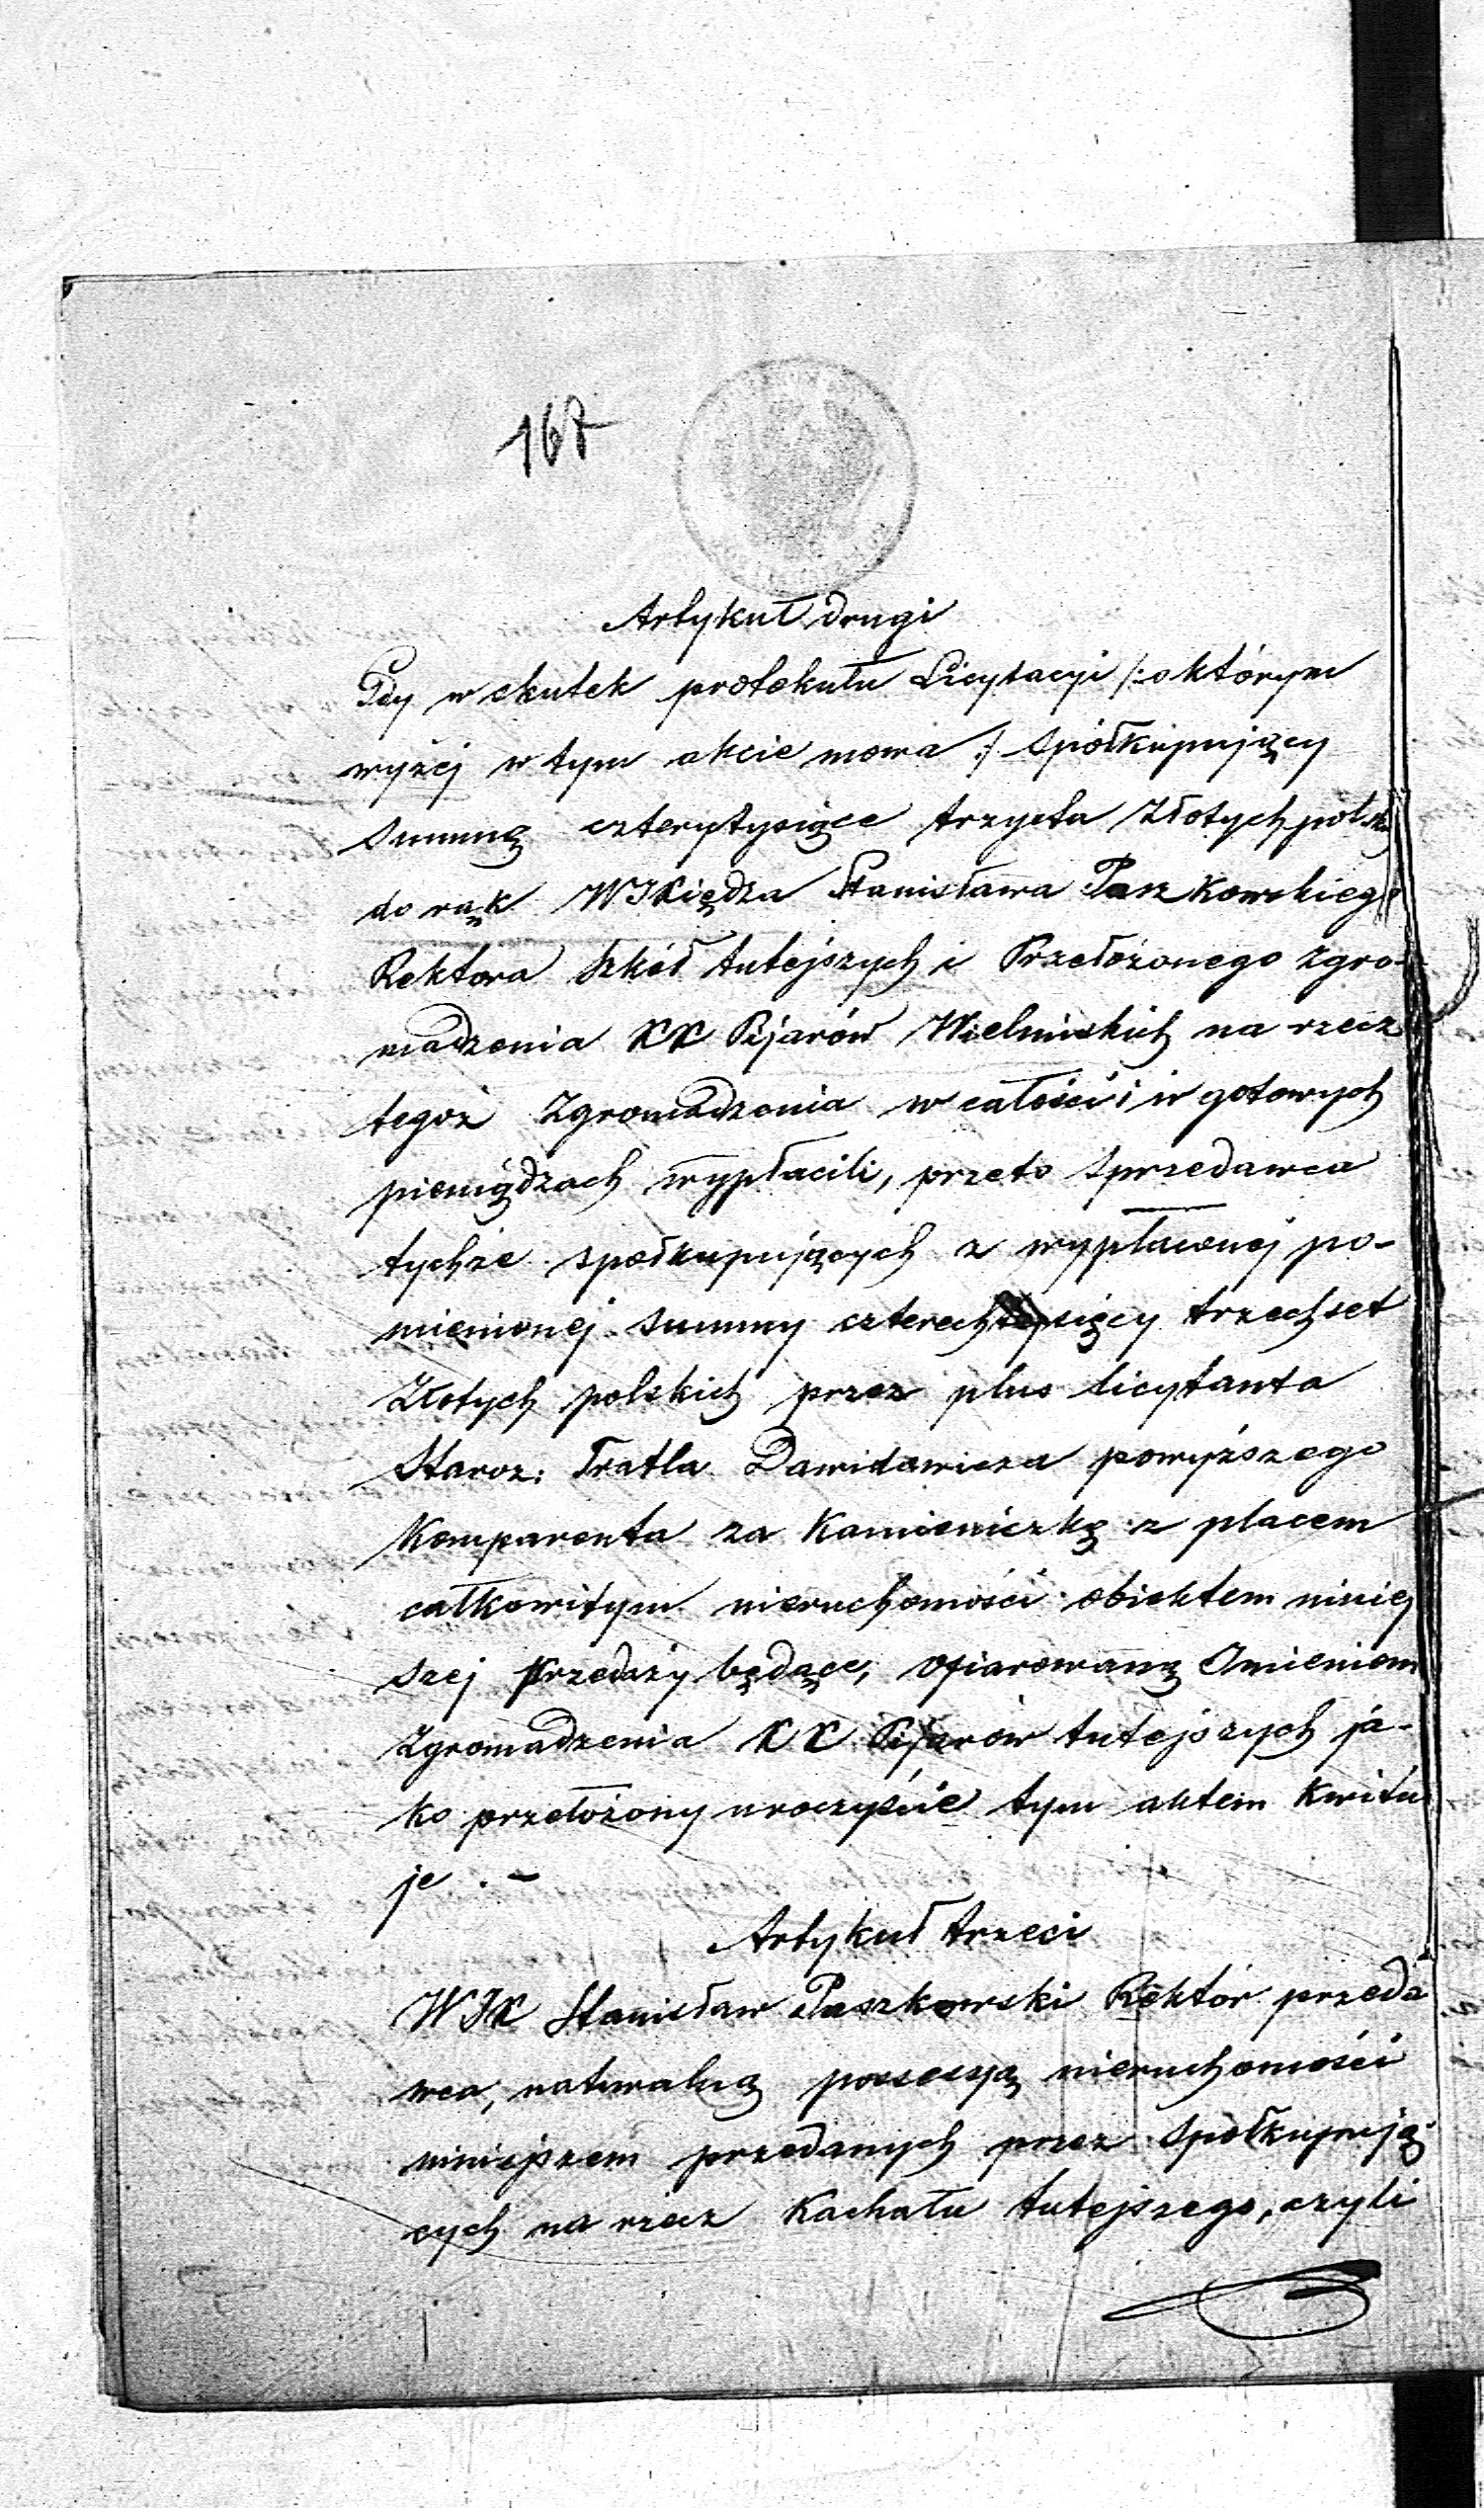 167
Artykuł drugi
Gdy w skutek protokułu Licytacyi /: o którym
wyżej w tym akcie mowa :/ spółkupujący
summę czterytysiące trzysta złotych polski
do rąk WJXiędza Stanisława Paszkowskiego
Rektora szkół tutejszych i Przełożonego zgro-
madzenia XX Pijarów Wieluńskich na rzecz
tegoż Zgromadzenia w całości i w gotowych
pieniądzach wypłacili, przeto sprzedawca
tychże spółkupujących z wypłaconej po-
mienionej summy czterech tysięcy trzechset
Złotych polskich przez plus licytanta
Staroz: Tratla Dawidowicza powyższego
Komparenta za Kamieniczkę z placem
całkowitym nieruchomości obiektem niniej
szej przedaży będące, ofiarowaną Imieniem
Zgromadzenia XX Pijarów tutejszych ja-
ko przełożony uroczyście tym aktem kwitu
je . –
Artykuł trzeci
WJX Stanisław Paszkowski Rektor przeda
wca, naturalną possessyą nieruchomości
niniejszem przedanych przez spółkupują-
cych na rzecz Kachału tutejszego, czyli